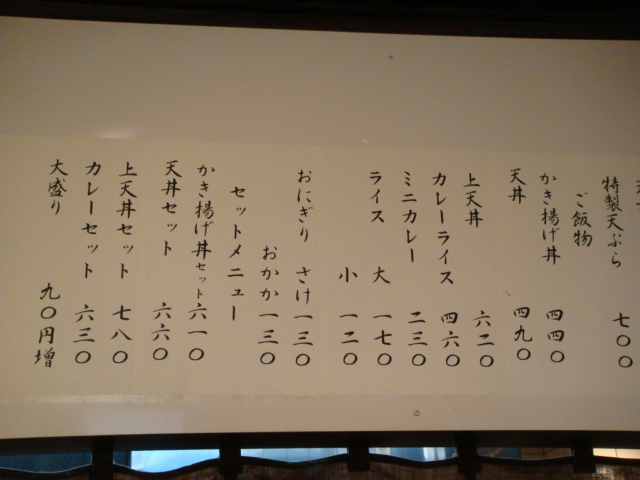 特製天ぷら 七〇〇
ご飯物
かき揚げ丼 四四〇
天丼 四九〇
上天丼 六二〇
カレーライス 四六〇
ミニカレー 二三〇
ライス 大 一七〇
小 一二〇
おにぎり さけ 一三〇
おかか 一三〇
セットメニュー
かき揚げ丼セット 六一〇
天丼セット 六六〇
上天丼セット 七八〇
カレーセット 六三〇
大盛り 九〇円増